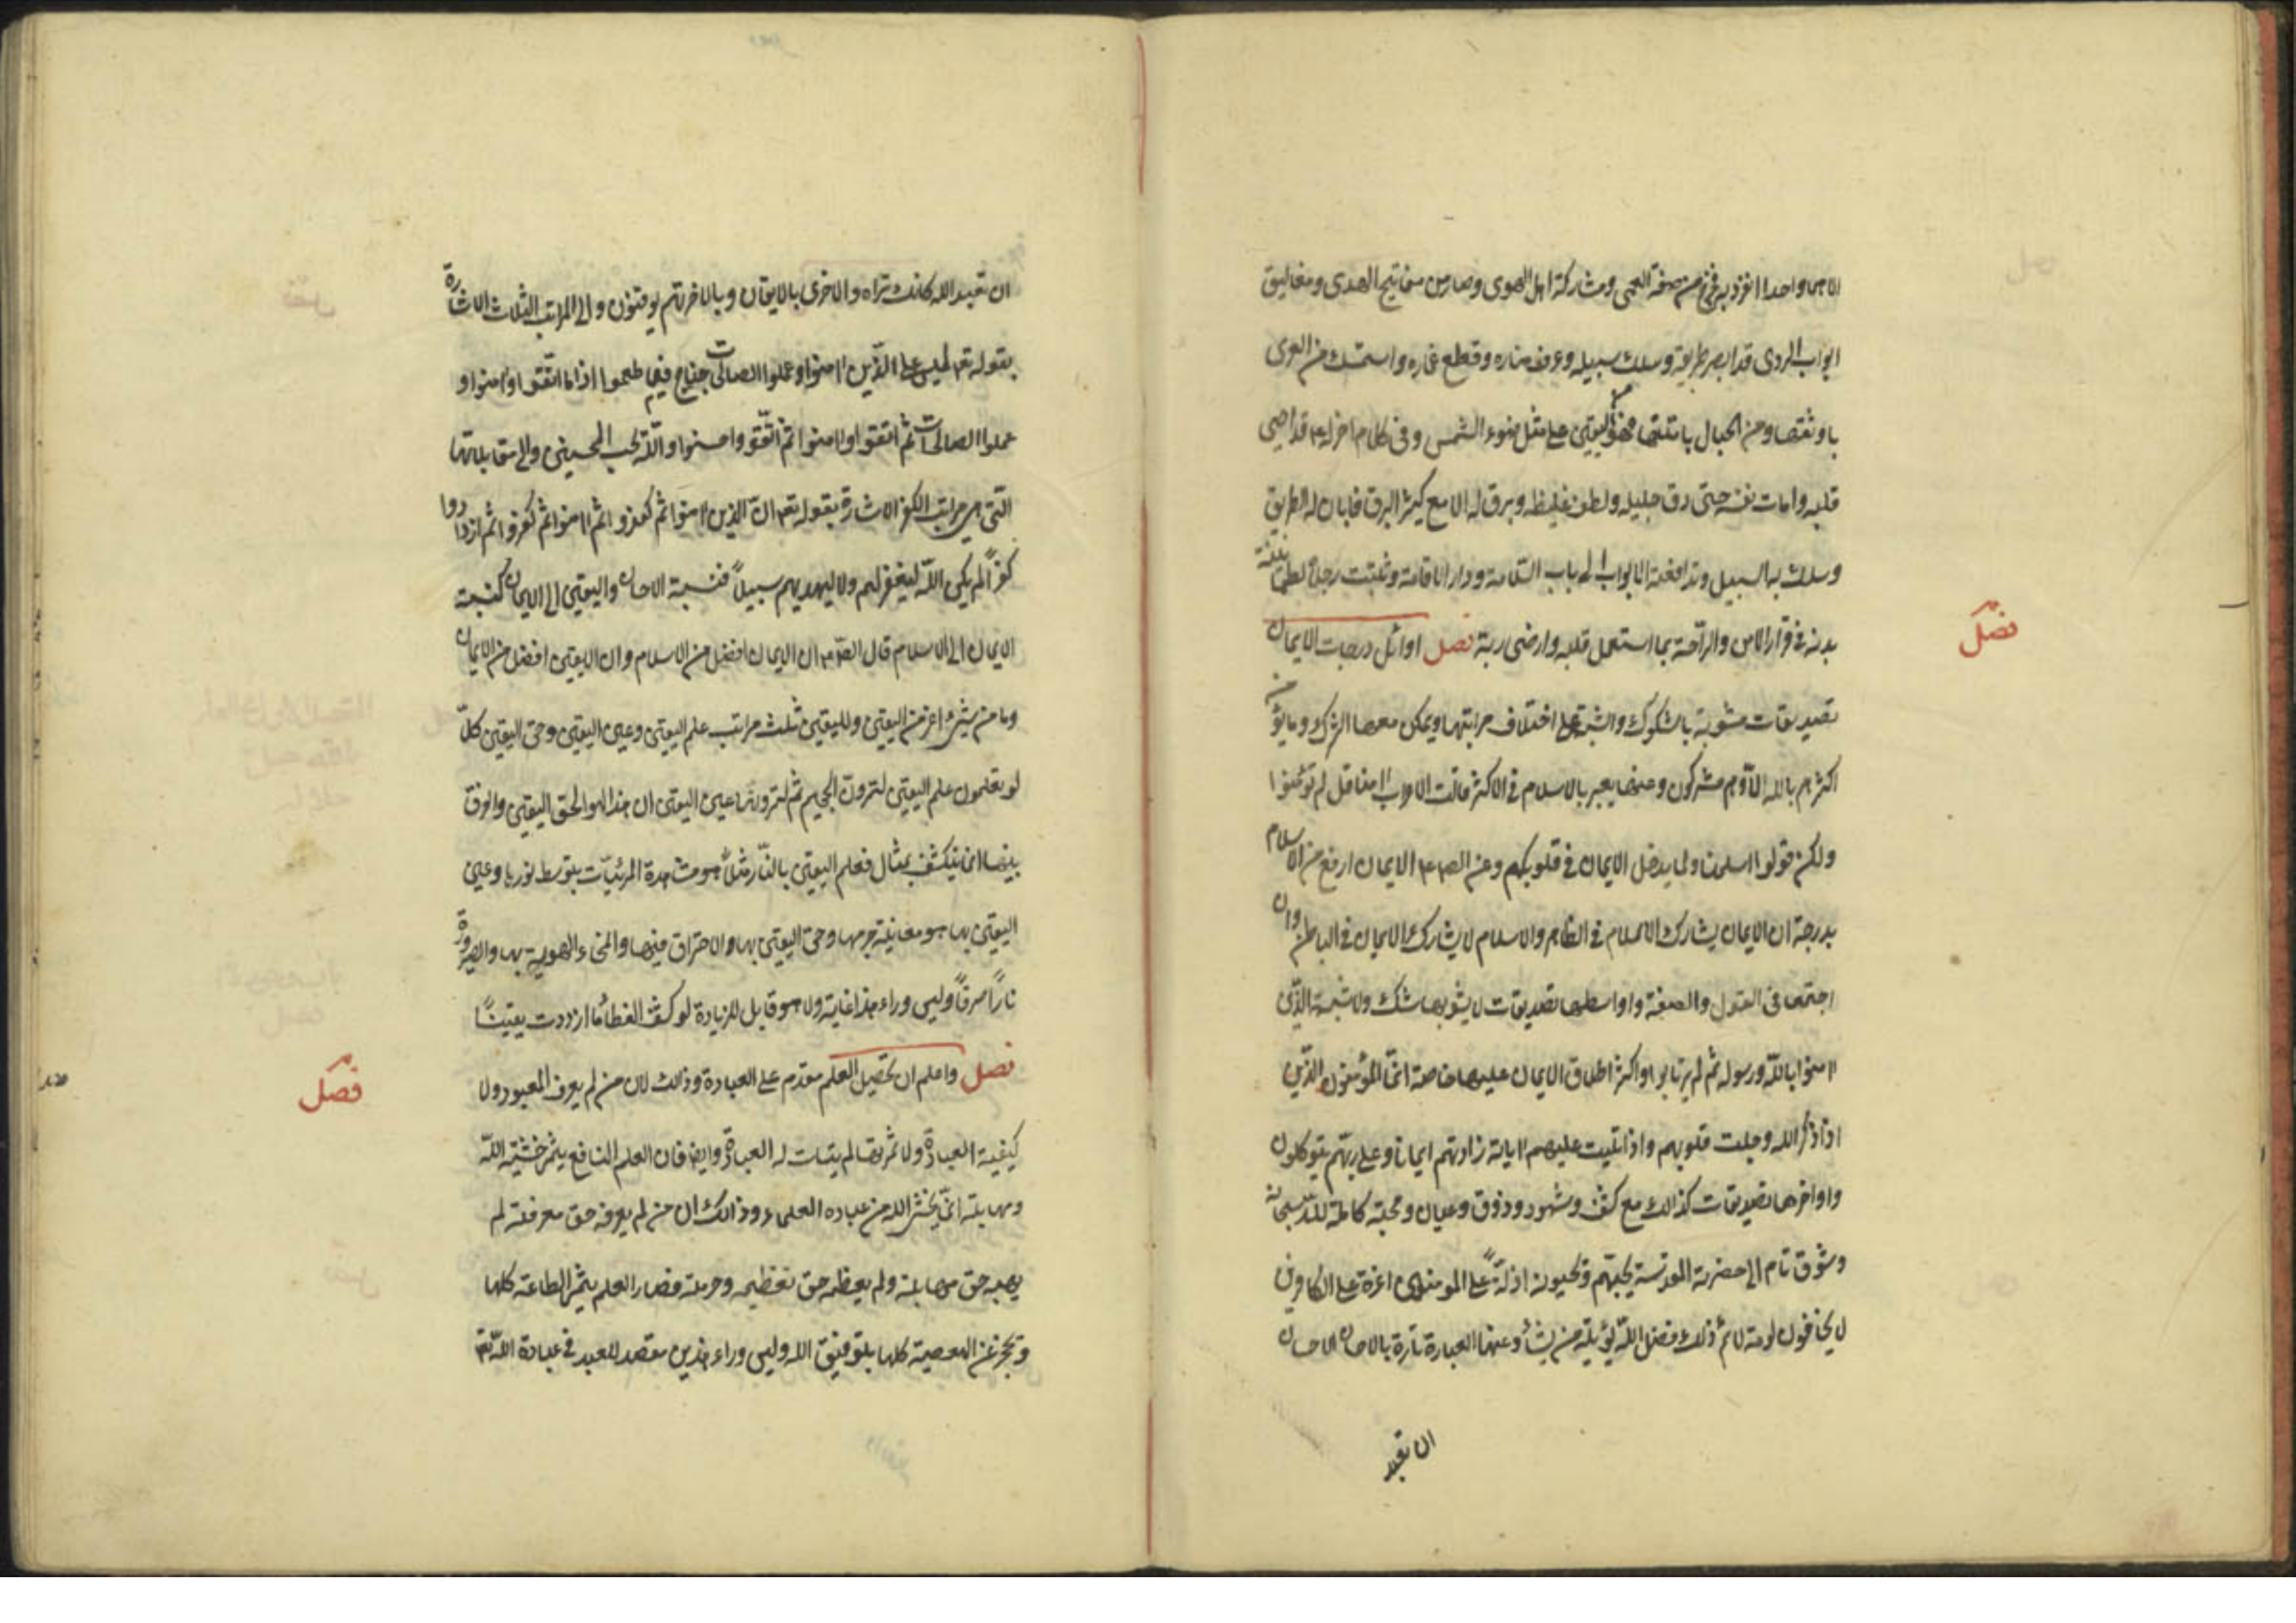 الا هما واحدا انفرد به فخرج من صفة العمى ومشاركة اهل الهوى وصار من مفاتيح الهدى ومغاليق
ابواب الردى قد ابصر طريقه وسلك سبيله وعرف مناره وقطع غماره واستمسك من العرى
باوثقها ومن الحبال بامتنها فهو من اليقين على مثل ضوء الشمس وفى كلام اخر له ع قد احيى
قلبه وامات نفسه حتى دق جليله ولطف غليظه وبرق له لامع كثير البرق فابان له الطريق
وسلك به السبيل وتدافعته الابواب الى باب السّلامة ودار الاقامة وثبتت رجلاه بطمانينة
بدنه فى قرار الامن والرّاحة بما استعمل قلبه وارضى ربّه فصل اوائل درجات الايمان
فصل
تصديقات مشوبة بالشكوك والشبه على اختلاف مراتبها ويمكن معها الشرك وما يؤمن
اكثرهم بالله الّا وهم مشركون وعنها يعبر بالاسلام فى الاكثر قالت الاعراب امنا قل لم تؤمنوا
ولكن قولوا اسلمنا ولما يدخل الايمان فى قلوبكم وعن الص ع م الايمان ارفع من الاسلام
بدرجة ان الايمان يشارك الاسلام فى الظاهر والاسلام لا يشارك الايمان فى الباطن وان
اجتمعا فى القول والصفة واواسطها تصديقات لا يشوبها شك ولا شبهة الذّين
امنوا باللّه ورسوله ثم لم يرتابوا واكثر اطلاق الايمان عليها خاصة انّما المؤمنون الذّين
اذا ذكر اللّه وجلت قلوبهم واذا تليت عليهم اياته زادتهم ايمانا وعلى ربّهم يتوكلون
واواخرها تصديقات كذالك مع كشف وشهود وذوق وعيان ومحبّة كاملة للّه سبحانه
وشوق تام الى حضرته المقدسة يحبّهم ويحبونه اذلّةً على المومنين اعزة على الكافرين
لا يخافون لومة لائم ذلك فضل اللّه يؤتيه من يشأ وعنها العبارة تارة بالاحسان الاحسان
ان تعبد
ان تعبد اللّه كانك تراه والاخرى بالايقان وبالاخرة هم يوقنون والى المراتب الثلاث الاشارة
بقوله تع ليس على الذّين امنوا وعملوا الصالحات جناح فيما طعموا اذا ما اتقوا وامنوا و
عملوا الصالحات ثم اتقوا وامنوا ثمّ اتّقو واحسنوا واللّه يحب المحسنين والى مقابلاتها
الّتى هى مراتب الكفر الاشارة بقوله تع ان الّذين امنوا ثم كفرو اثم امنوا ثم كفروا ثم ازدادوا
كفراً لم يكن اللّه ليغفر لهم ولا ليهديهم سبيلاً فنسبة الاحسان واليقين الى الايمان كنسبة
الايمان الى الاسلام قال الص ع م ان الايمان افضل من الاسلام وان اليقين افضل من الايمان
وما من شىء اعز من اليقين ولليقين ثلث مراتب علم اليقين وعين اليقين وحق اليقين كلّا
لو تعلمون علم اليقين لترونّ الجحيم ثم لترونّها عين اليقين ان هذا لهو الحق اليقين والفرق
بينها انما ينكشف بمثال فعلم اليقين بالنّار مثلاً هو مشاهدة المرئيّات بتوسط نورها وعين
اليقين بها هو معاينة جرمها وحق اليقين بها والاحتراق فيها وانمحاء الهوية بها والصيرورة
ناراً صرفاً وليس وراء هذا غاية ولا هو قابل للزيادة لو كشف الغطأ ما ازددت يقيناً
فصل واعلم ان تحصيل العلم مقدم على العبادة وذالك لان من لم يعرف المعبود ولا
فصل
كيفية العبادة ولا ثمرتها لم يتات له العبادة وايضا فان العلم النافع يثمر خشية اللّه
ومهابته انّما يخشى اللّه من عباده العلماء وذالك ان من لم يعرفه حق معرفته لم
يهبه حق مهابته ولم يعظمه حق تعظيمه وحرمته فصار العلم يثمر الطاعة كلها
وتحجز عن المعصية كلها بتوفيق اللّه وليس وراء هذين مقصد للعبد فى عبادة اللّه تع